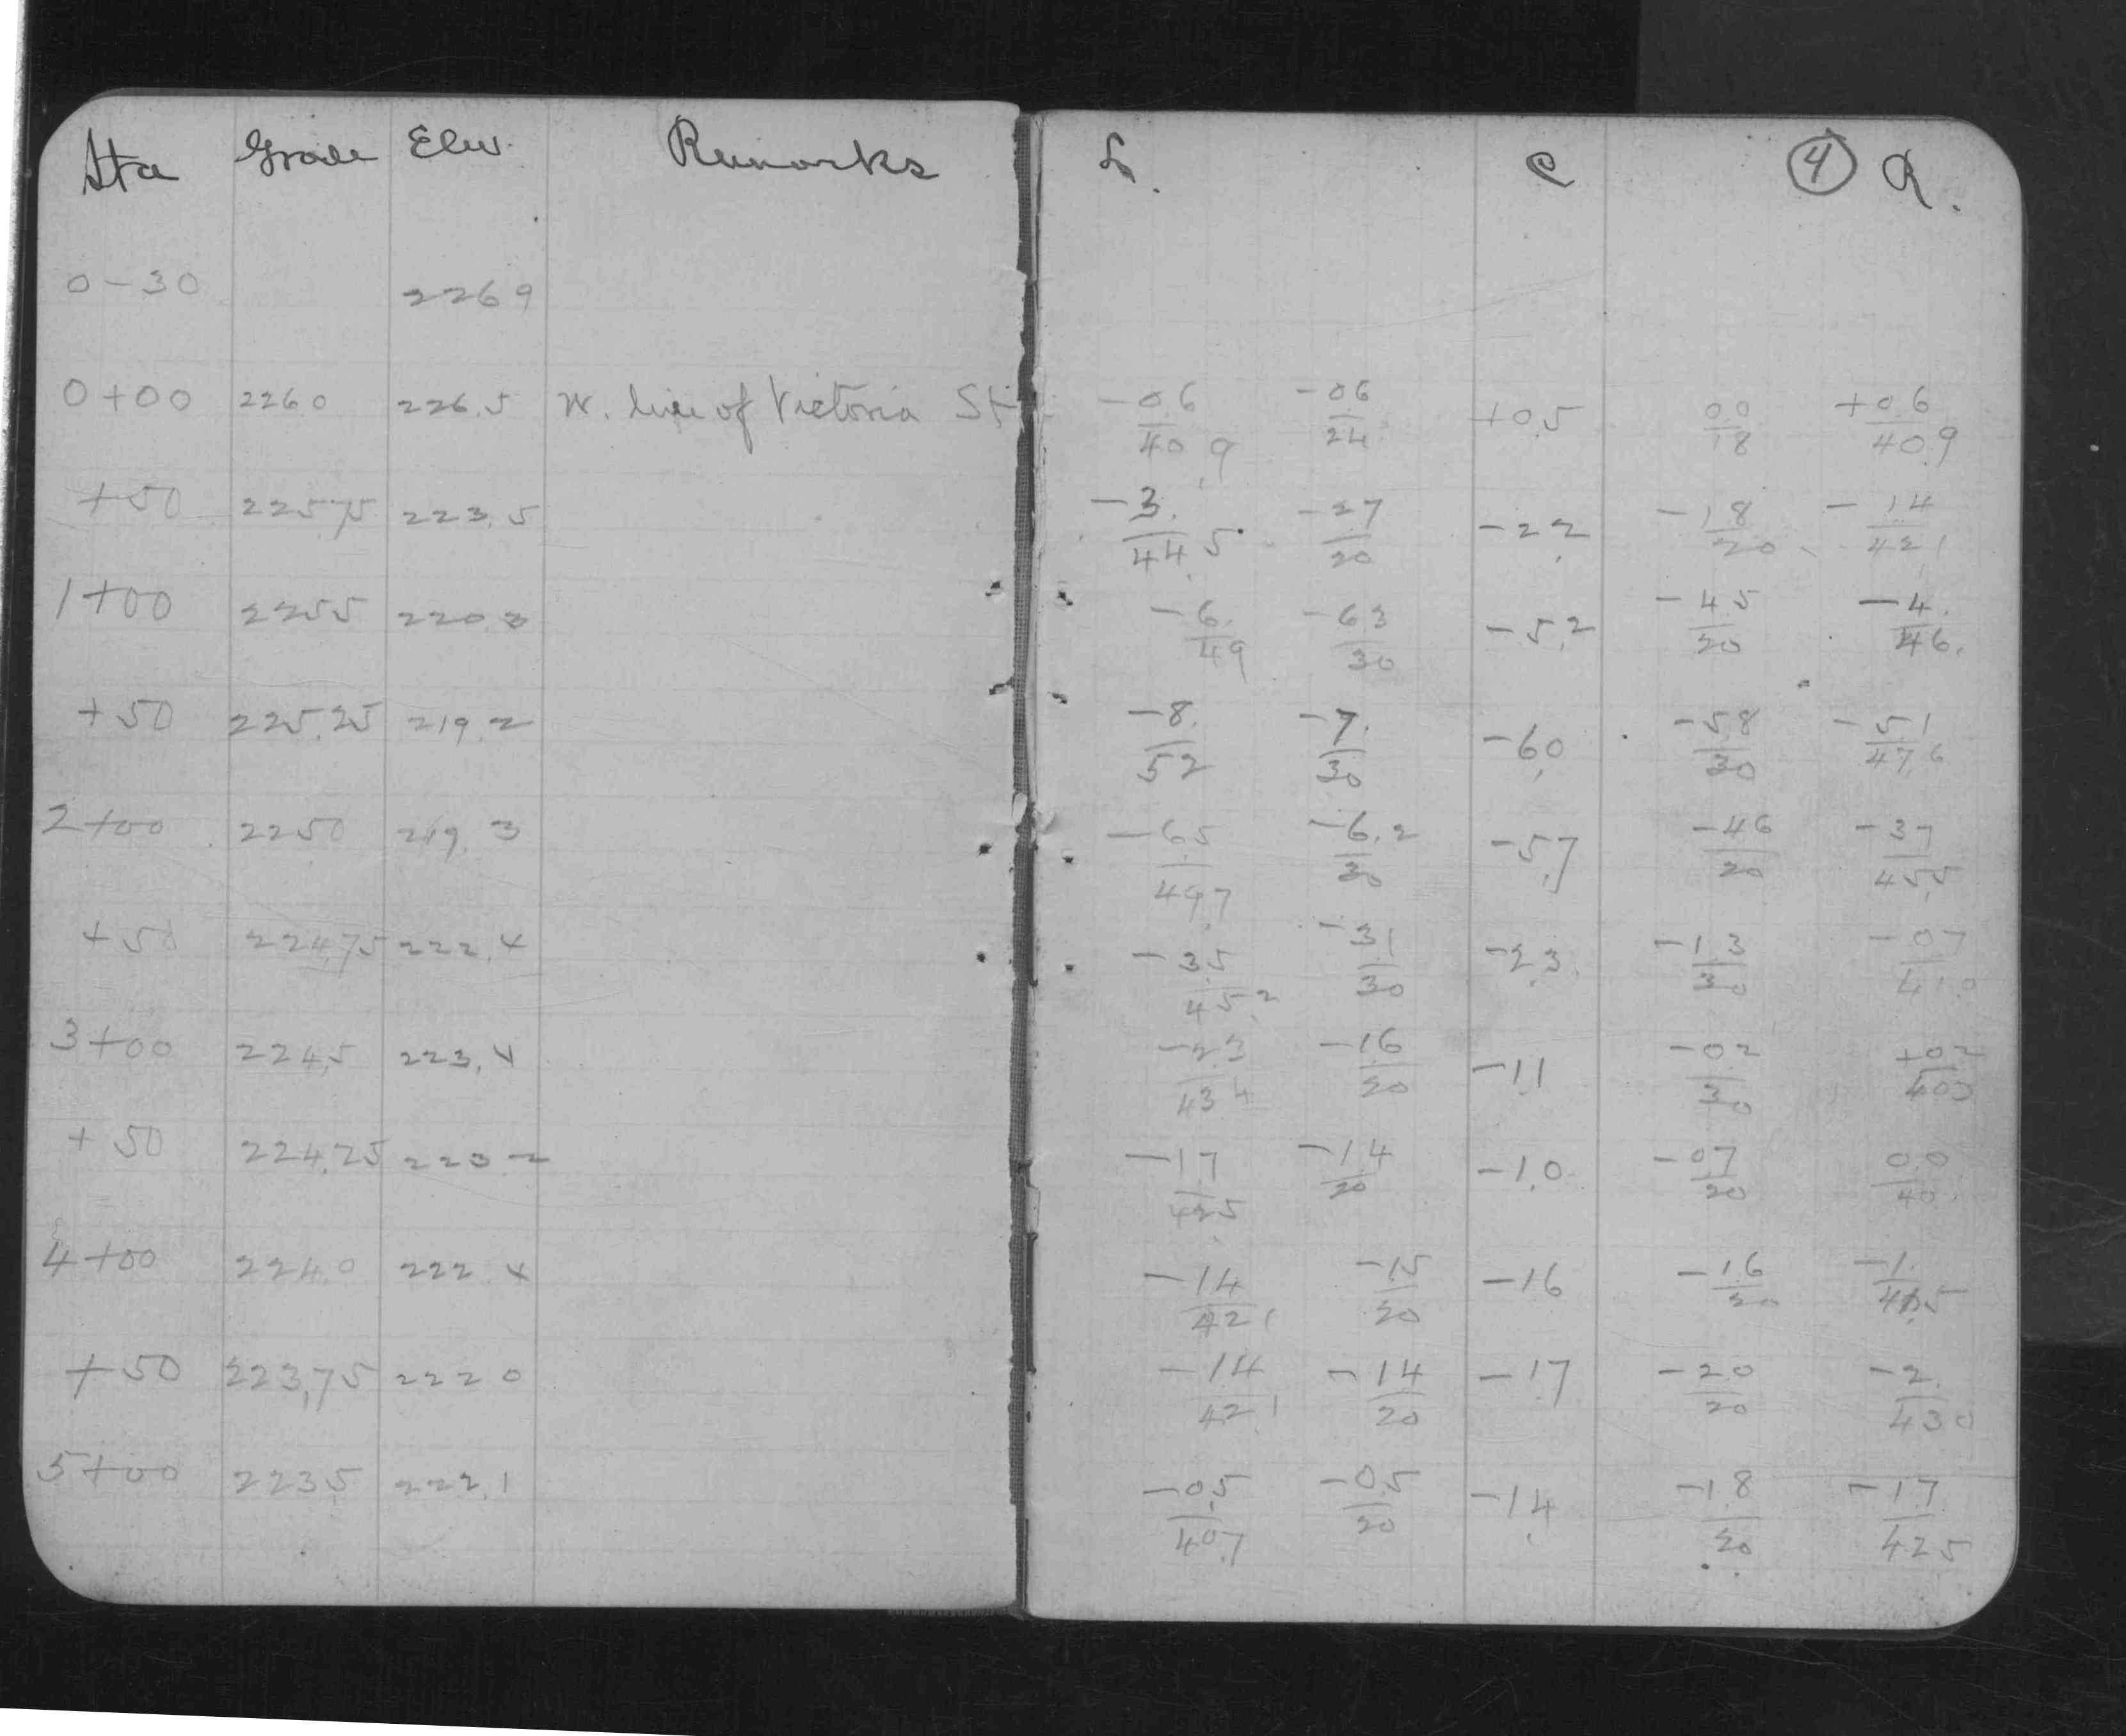 Sta Grade Elev. Remarks L. C ④ R.
0-30 226 9
0+00 226 0 226.5 W. line of Victoria St -0.6/40.9 -0.6/24 +0.5 0.0/18 +0.6/40.9
+50 225.75 223.5 -3./44.5 -2.7/20 -2.2 -1.8/20 -1.4/42.1
1+00 225.5 220.3 -6./49 -6.3/30 -5.2 -4.5/20 -4./46.
+50 225.25 219.2 -8./52 -7./30 -6.0 -5.8/30 -5.1/47.6
2+00 225 0 219.3 -6.5/49.7 -6.2/30 -5.7 -4.6/20 -3.7/45.5
+50 224.75 222.4 -3.5/45.2 -3.1/30 -2.3 -1.3/30 -0.7/41.0
3+00 224.5 223.4 -2.3/43.4 -1.6/20 -1.1 -0.2/30 +0.2/40.3
+50 224.25 223.2 -1.7/42.5 -1.4/20 -1.0 -0.7/20 0.0/40.
4+00 224.0 222.4 -1.4/42.1 -1.5/20 -1.6 -1.6/20 -1./41.5
+50 223.75 222 0 -1.4/42.1 -1.4/20 -1.7 -2.0/20 -2./43.0
5+00 223.5 222.1 -0.5/40.7 -0.5/20 -1.4 -1.8/20 -1.7/42.5